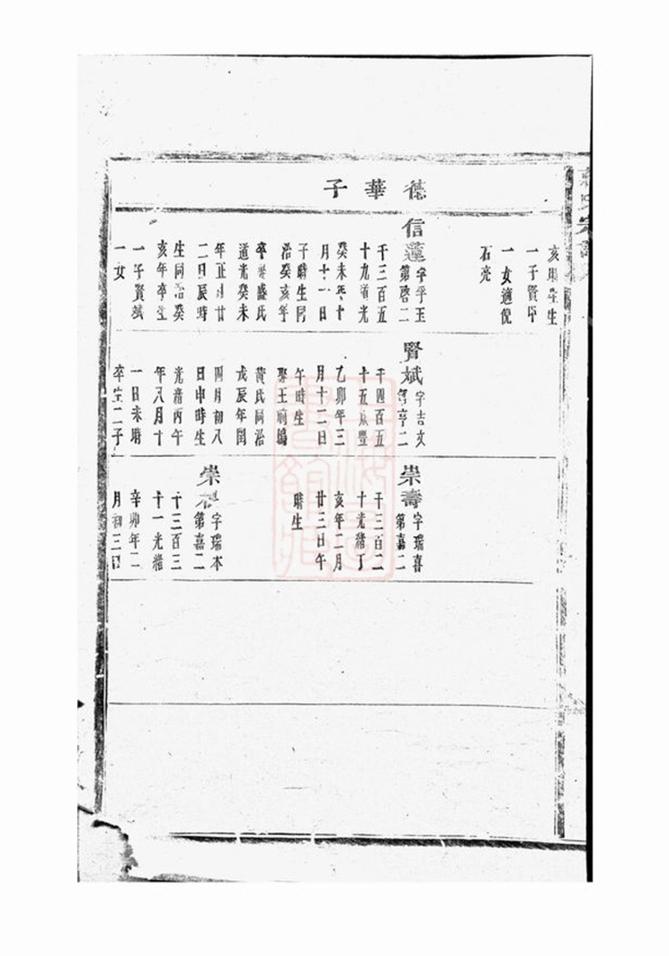 德華子
亥時生生
一子賢
一女適倪
石亮
信蓮 字孚玉
第啓二
千三百五
十九道光
癸未年十
月十一日
子時生同
治癸亥年
卒娶盛氏
道光癸未
年正月廿
二日辰時
生同治癸
亥年卒生
一子賢斌
一女
賢斌 字吉文
亨二
千四百五
十五咸豐
乙卯年三
月十二日
午時生
聚王府塢
黃氏同治
戊辰年閏
四月初八
日申時生
光緒丙午
年八月十
一日未時
卒生二子
崇壽 字瑞喜
第嘉二
千三百二
十光緒丁
亥年二月
廿三日午
時生
崇 字瑞本
第嘉二
千三百三
十一光緒
辛卯年二
月初三日